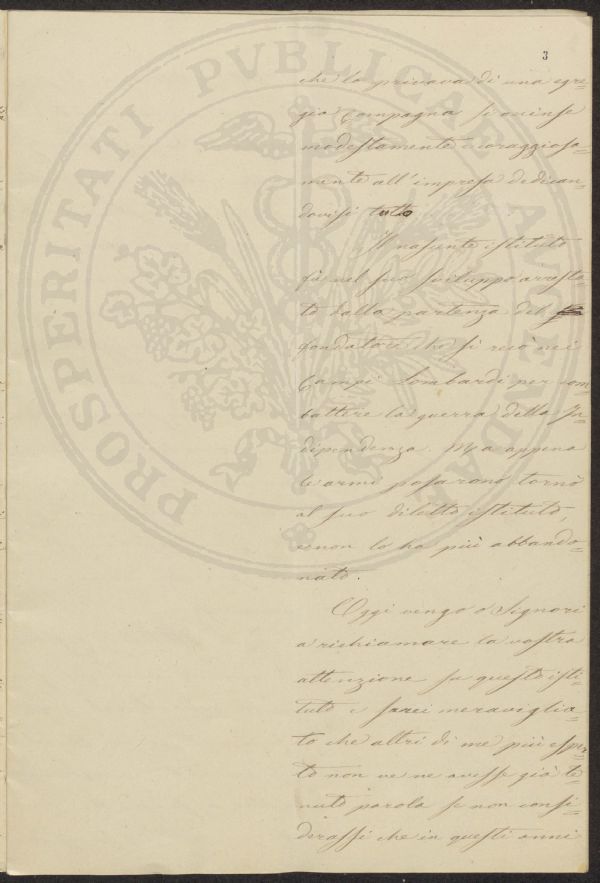 3
che lo privava di una egre=
gia Compagna si accinse
modestamente e coraggiosa=
mente all'impresa dedican=
dovisi tutto
Il nascente istituto
fù nel suo sviluppo arresta=
to dalla partenza del
fondatore che si recò nei
Campi Lombardi per com=
battere la guerra della In=
dipendenza. Ma appena
le armi posarono tornò
al suo diletto istituto,
e non lo ha più abbando=
nato.
Oggi vengo o Signori
a richiamare la vostra
attenzione su questo isti=
tuto e sarei meraviglia=
to che altri di me più esper=
to non ve ne avesse già te=
nuto parola se non consi=
derassi che in questi anni
PROSPERITATI PVBLICAE AVGENDAE